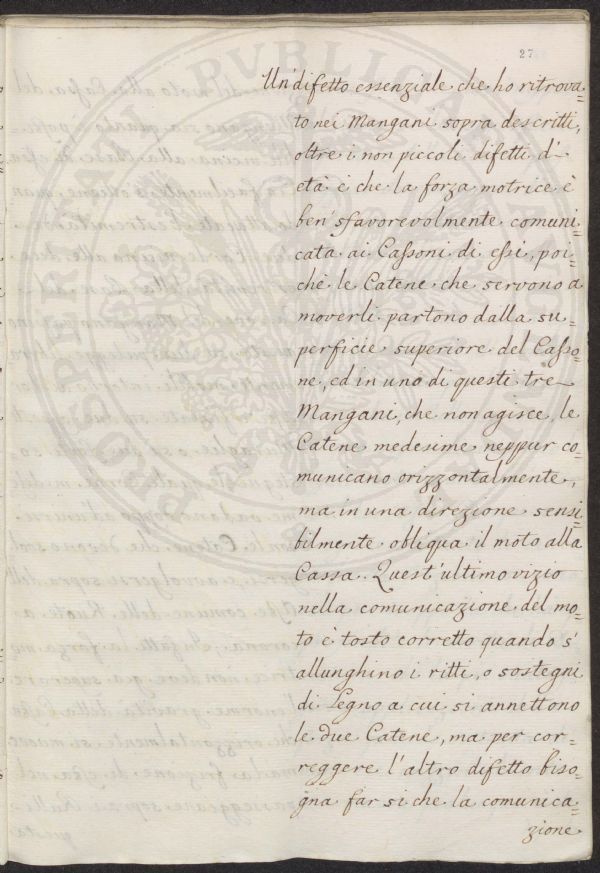 27
Un'difetto essenziale che ho ritrova=
to nei Mangani sopra descritti,
oltre i non piccoli difetti d'
età è che la forza motrice è
ben'sfavorevolmente comuni=
cata ai Cassoni di essi, poi=
chè le Catene che servono a
moverli partono dalla su=
perficie superiore del Casso=
ne, ed in uno di questi tre
Mangani, che non agisce, le
Catene medesime neppur co=
municano orizzontalmente,
ma in una direzione sensi=
bilmente obliqua il moto alla
Cassa. Quest'ultimo vizio
nella comunicazione del mo=
to è tosto corretto quando s'
allunghino i ritti, o sostegni
di Legno a cui si annettono
le due Catene, ma per cor=
reggere l'altro difetto biso=
gna far si che la comunica=
zione
PROSPERITATI PVBLICAE